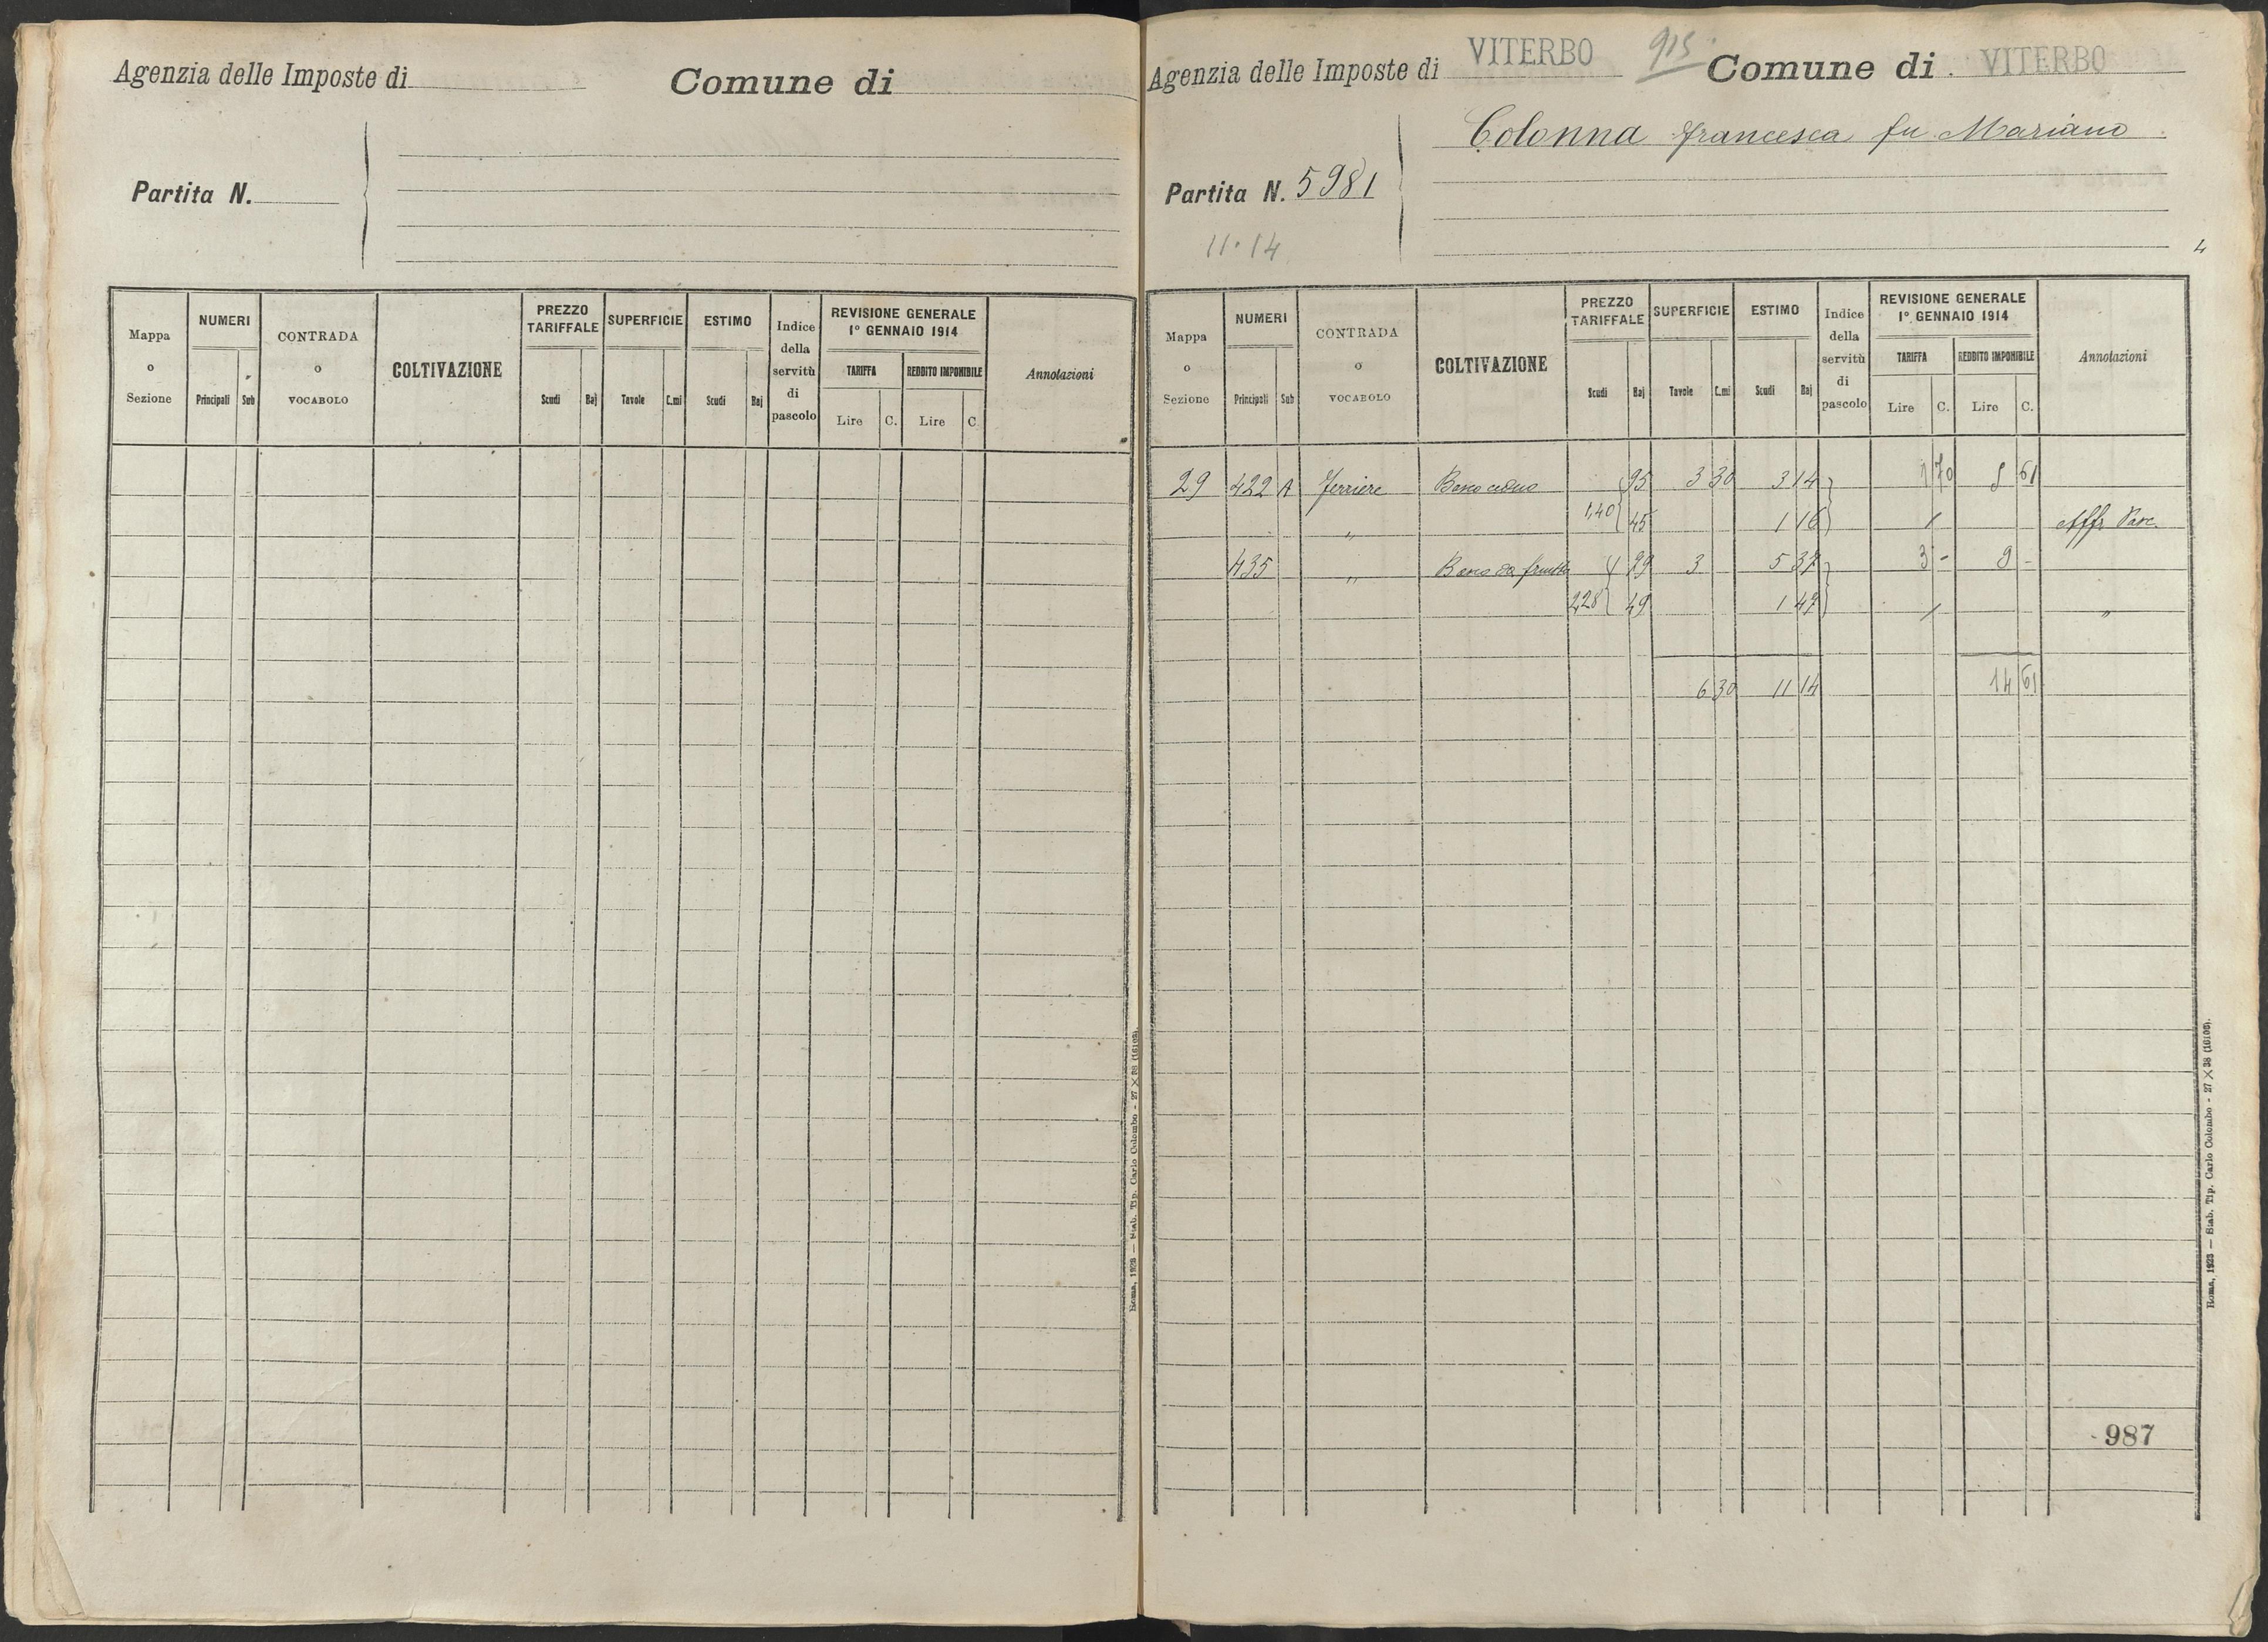 Agenzia delle Imposte di
Comune di
Partita N.
Mappa o Sezione
NUMERI
Principali Sub
CONTRADA o VOCABOLO
COLTIVAZIONE
PREZZO TARIFFALE
Scudi Baj
SUPERFICIE
Tavole C.mi
ESTIMO
Scudi Baj
Indice della servitù di pascolo
REVISIONE GENERALE
1º GENNAIO 1914
TARIFFA
Lire C.
REDDITO IMPONIBILE
Lire C.
Annotazioni
Roma, 1923 — Stab. Tip. Carlo Colombo - 27 × 38 (16103).
Agenzia delle Imposte di VITERBO 915 Comune di VITERBO
Colonna Francesca fu Mariano
Partita N. 5981
11.14
4
Mappa o Sezione
NUMERI
Principali Sub
CONTRADA o VOCABOLO
COLTIVAZIONE
PREZZO TARIFFALE
Scudi Baj
SUPERFICIE
Tavole C.mi
ESTIMO
Scudi Baj
Indice della servitù di pascolo
REVISIONE GENERALE
1º GENNAIO 1914
TARIFFA
Lire C.
REDDITO IMPONIBILE
Lire C.
Annotazioni
29 422 A Ferriere Bosco ceduo 95 3 30 3 14 1 70 5 61
1,40 45 1 16 Affr Pasc.
435 " Bosco da frutto 1 79 3 5 37 3 - 9 -
2,28 49 1 47 "
6 30 11 14 14 61
987
Roma, 1923 — Stab. Tip. Carlo Colombo - 27 × 38 (16103).